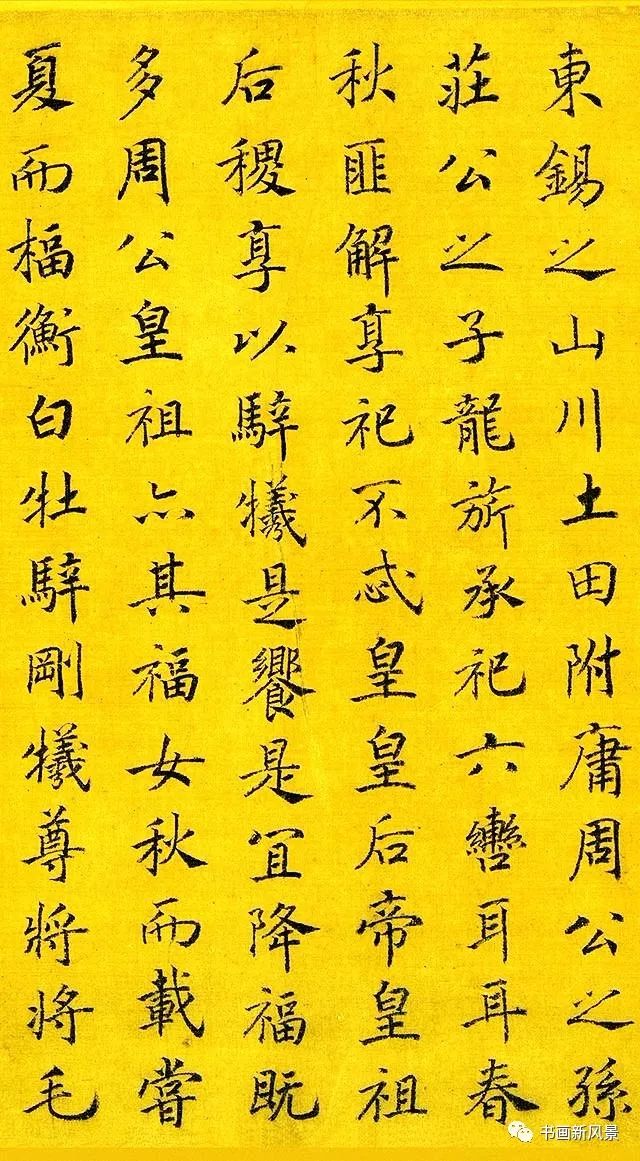 東錫之山川土田附庸周公之孫
莊公之子龍旂承祀六轡耳耳春
秋匪解享祀不忒皇皇后帝皇祖
后稷享以騂犧是饗是宜降福既
多周公皇祖亦其福女秋而載嘗
夏而楅衡白牡騂剛犧尊將將毛
书画新风景